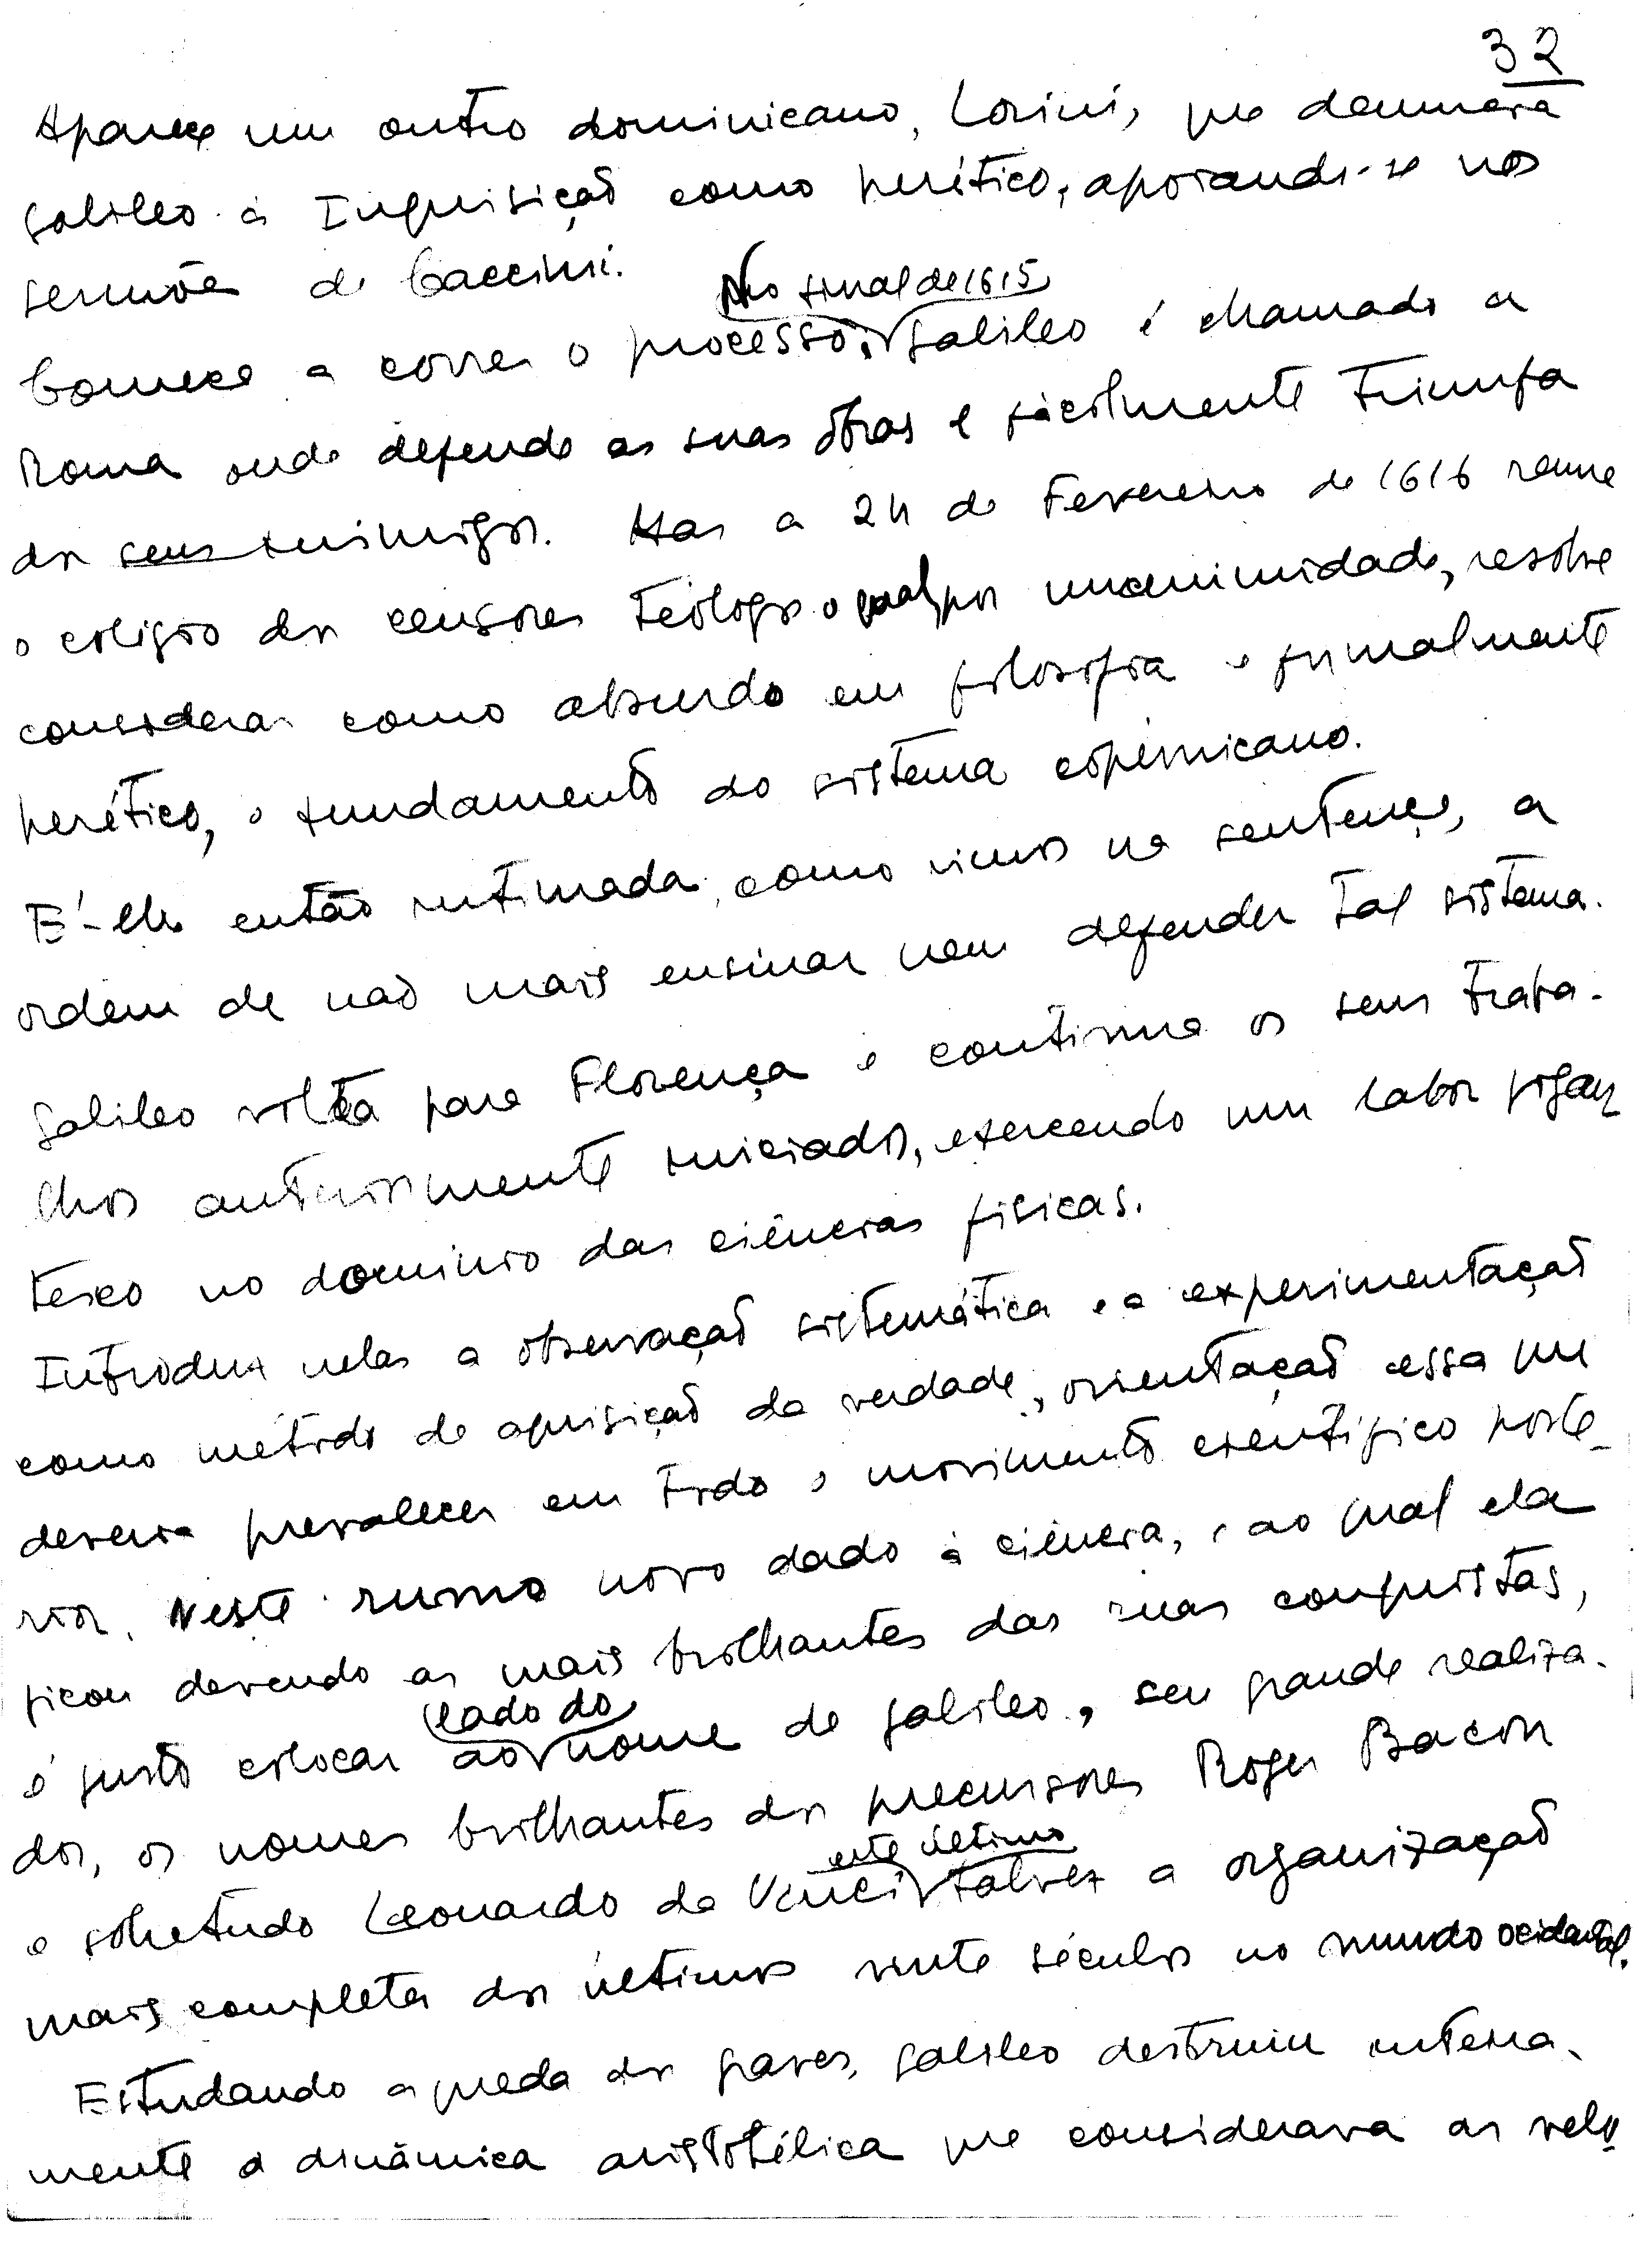 32
Aparece um outro dominicano, Lorini, que denuncia
Galileo à Inquisição como herético, apoiando-se nos
sermões de Caccini.
No final de 1615
Começa a correr o processo; Galileo é chamado a
Roma onde defende as suas obras e fàcilmente triunfa
dos seus inimigos. Mas a 24 de Fevereiro de 1616 reune
o colégio dos censores teólogos o qual, por unanimidade, resolve
considerar como absurdo em filosofia e formalmente
herético, o fundamento do sistema copérnicano.
É-lhe então intimada, como vimos na sentença, a
ordem de não mais ensinar nem defender tal sistema.
Galileo volta para Florença e continua os seus traba-
lhos anteriormente iniciados, exercendo um labor gigan
tesco no domínio das ciências físicas.
Introduz nelas a observação sistemática e a experimentação
como método de aquisição da verdade, orientação essa que
deveria prevalecer em todo o movimento científico poste-
rior. Neste rumo novo dado à ciência, e ao qual ela
ficou devendo as mais brilhantes das suas conquistas,
lado do
é justo colocar ao nome de Galileo, seu grande realiza-
dor, os nomes brilhantes dos precursores Roger Bacon
este último
e sobretudo Leonardo da Vinci talvez a organização
mais completa dos últimos vinte séculos no mundo ocidental.
Estudando a queda dos graves, Galileo destruiu inteira-
mente a dinâmica aristotélica que considerava as velo